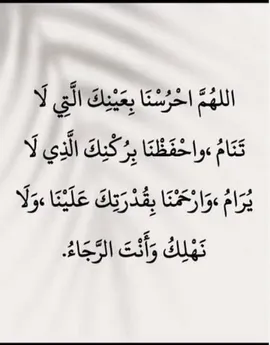 اللهُمَّ احْرُسْنَا بِعَيْنِكَ الَّتِي لَا
تَنَامُ ،واحْفَظْنَا بِرُكْنِكَ الَّذِي لَا
يُرَامُ ،وَارْحَمْنَا بِقُدْرَتِكَ عَلَيْنَا ،وَلَا
نَهْلِكُ وَأَنْتَ الرَّجَاءُ.